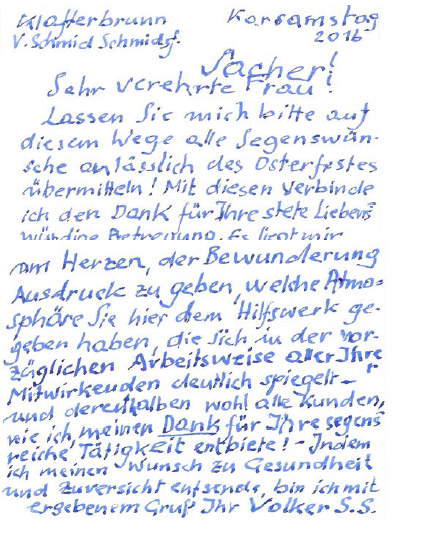 Klafterbrunn Karsamstag
V. Schmid Schmidsf. 2016
Sacher!
Sehr verehrte Frau
Lassen Sie mich bitte auf
diesem Wege alle Segenswün-
sche anlässlich des Osterfestes
übermitteln! Mit diesen verbinde
ich den Dank für Ihre stete Liebens
würdige Betreuung. Es liegt mir
am Herzen, der Bewunderung
Ausdruck zu geben, welche Atmo-
sphäre Sie hier dem Hilfswerk ge-
geben haben, die sich in der vor-
züglichen Arbeitsweise aller Ihre
Mitwirkenden deutlich spiegelt –
und derenthalben wohl alle Kunden,
wie ich, meinen Dank für Ihre segens
reiche Tätigkeit entbiete! – Indem
ich meinen Wunsch zu Gesundheit
und Zuversicht entsende, bin ich mit
ergebenem Gruß Ihr Volker S.S.